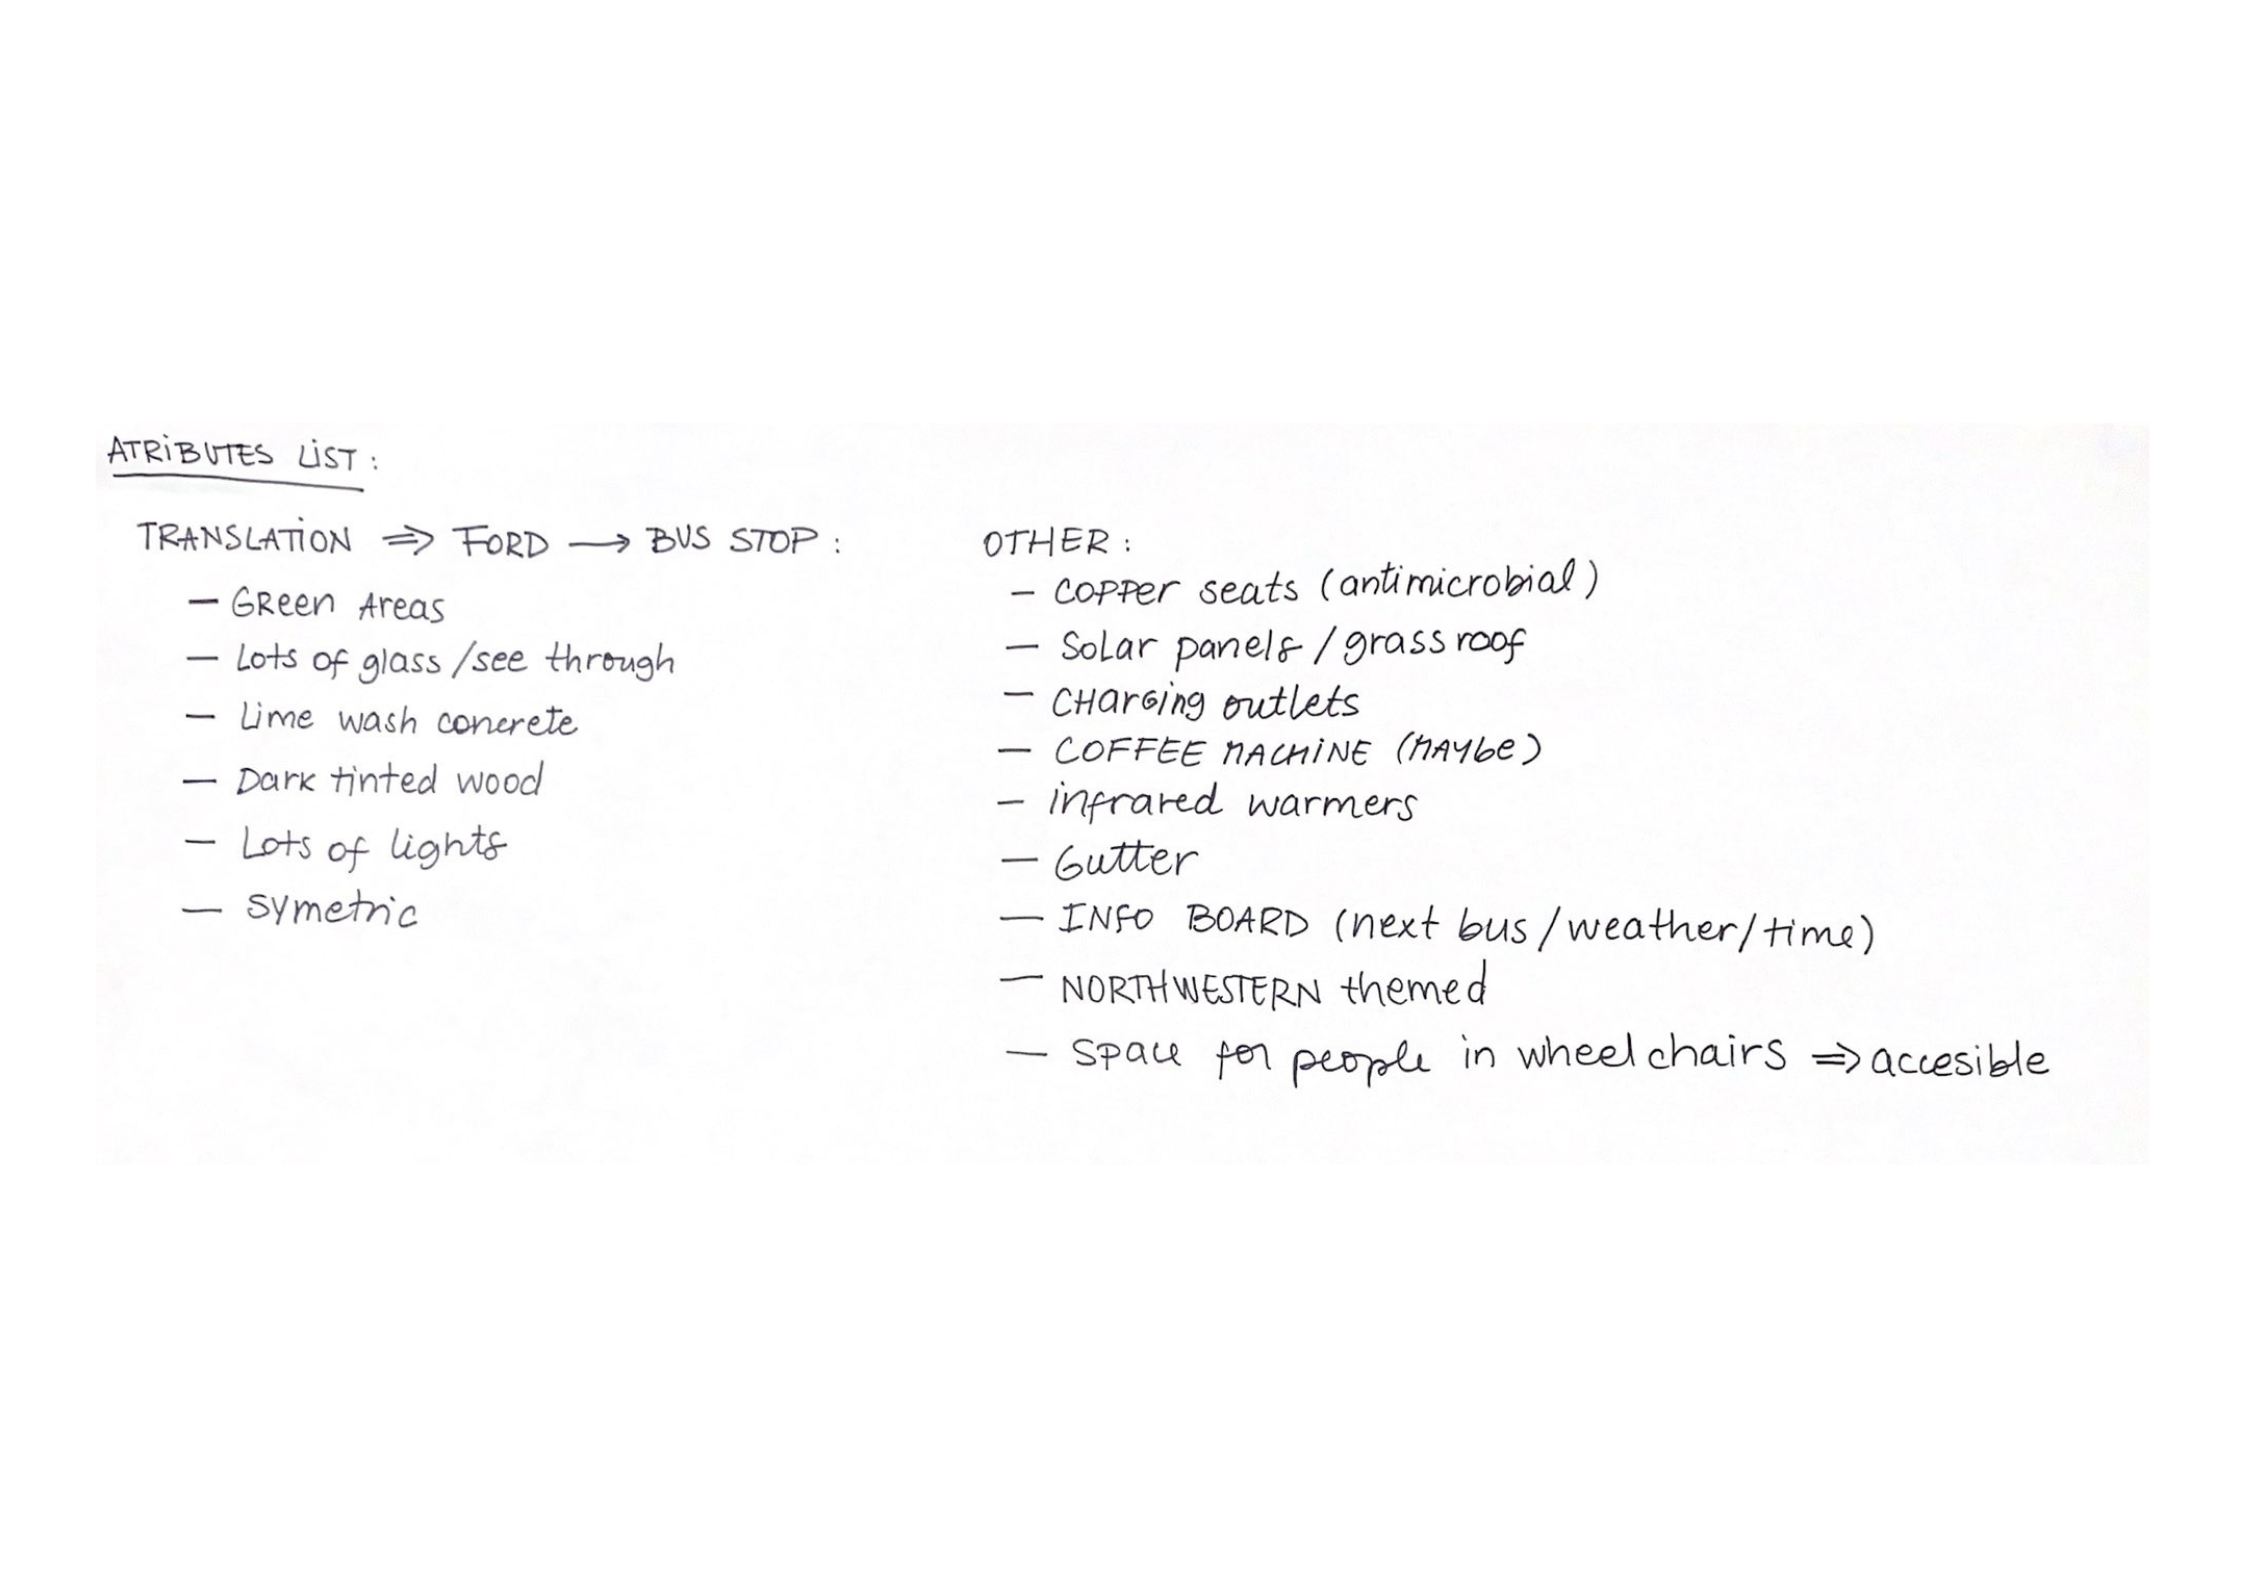 ATRIBUTES LIST :
TRANSLATION ⇒ FORD → BUS STOP :
— Green Areas
— Lots of glass /see through
— Lime wash concrete
— Dark tinted wood
— Lots of lights
— symetric
OTHER :
— Copper seats (antimicrobial)
— Solar panels / grass roof
— Charging outlets
— COFFEE MACHINE (MAYbe)
— infrared warmers
— Gutter
— INFO BOARD (next bus / weather / time)
— NORTHWESTERN themed
— Space for people in wheel chairs ⇒ accesible